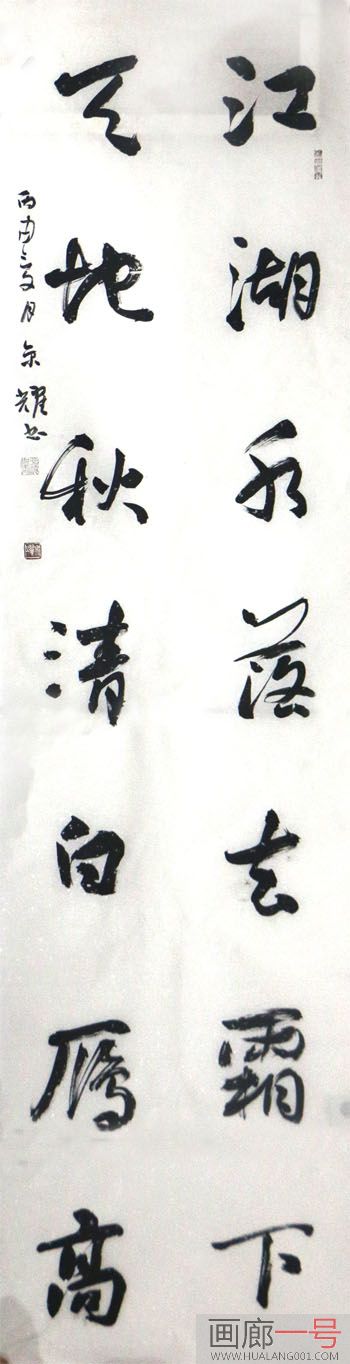 江湖水落玄霜下
天地秋清白鴈高
丙申夏月 耀书
画廊一号
WWW.HUALANG001.COM